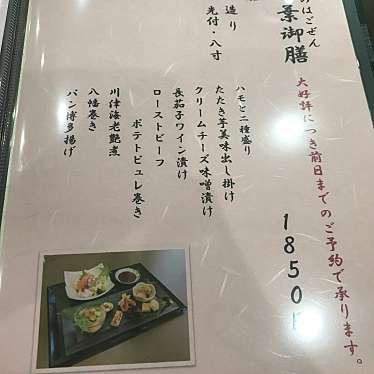 みはごぜん
葉御膳
大好評につき前日までのご予約で承ります。
1850
造り
先付・八寸
ハモと二種盛り
たたき芋美味出し掛け
クリームチーズ味噌漬け
長茄子ワイン漬け
ローストビーフ
ポテトピュレ巻き
川津海老艶煮
八幡巻き
パン博多揚げ